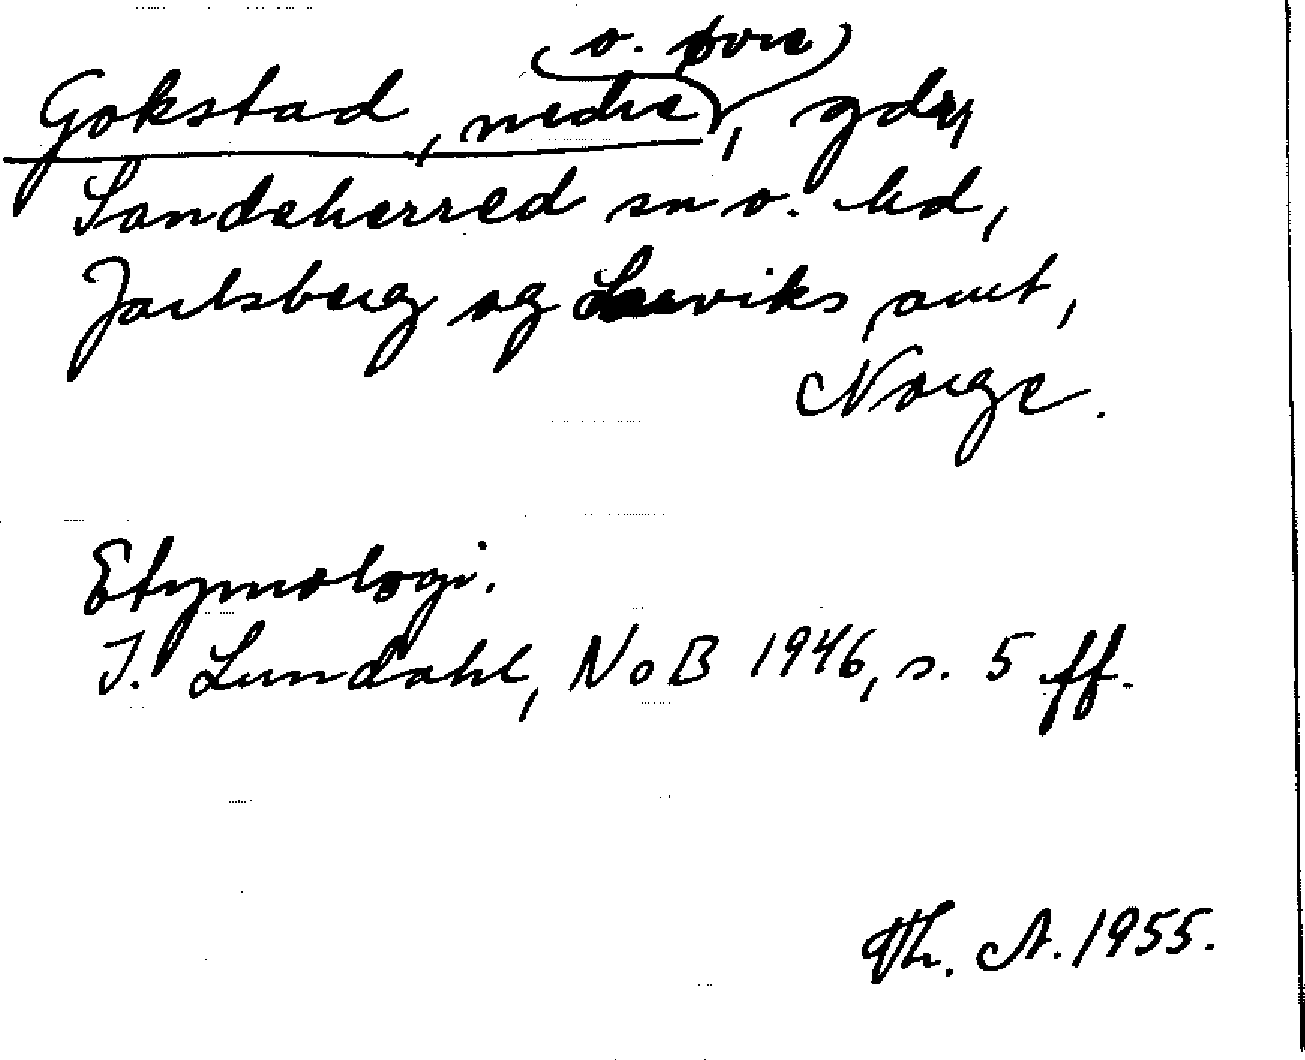 Gokstad, nedre (o. øvre), gdr
Sandeherred sn o. hd,
Jarlsberg og Larviks amt,
Norge.
Etymologi.
I. Lundahl, NoB 1946, s. 5 ff.
Th. A. 1955.